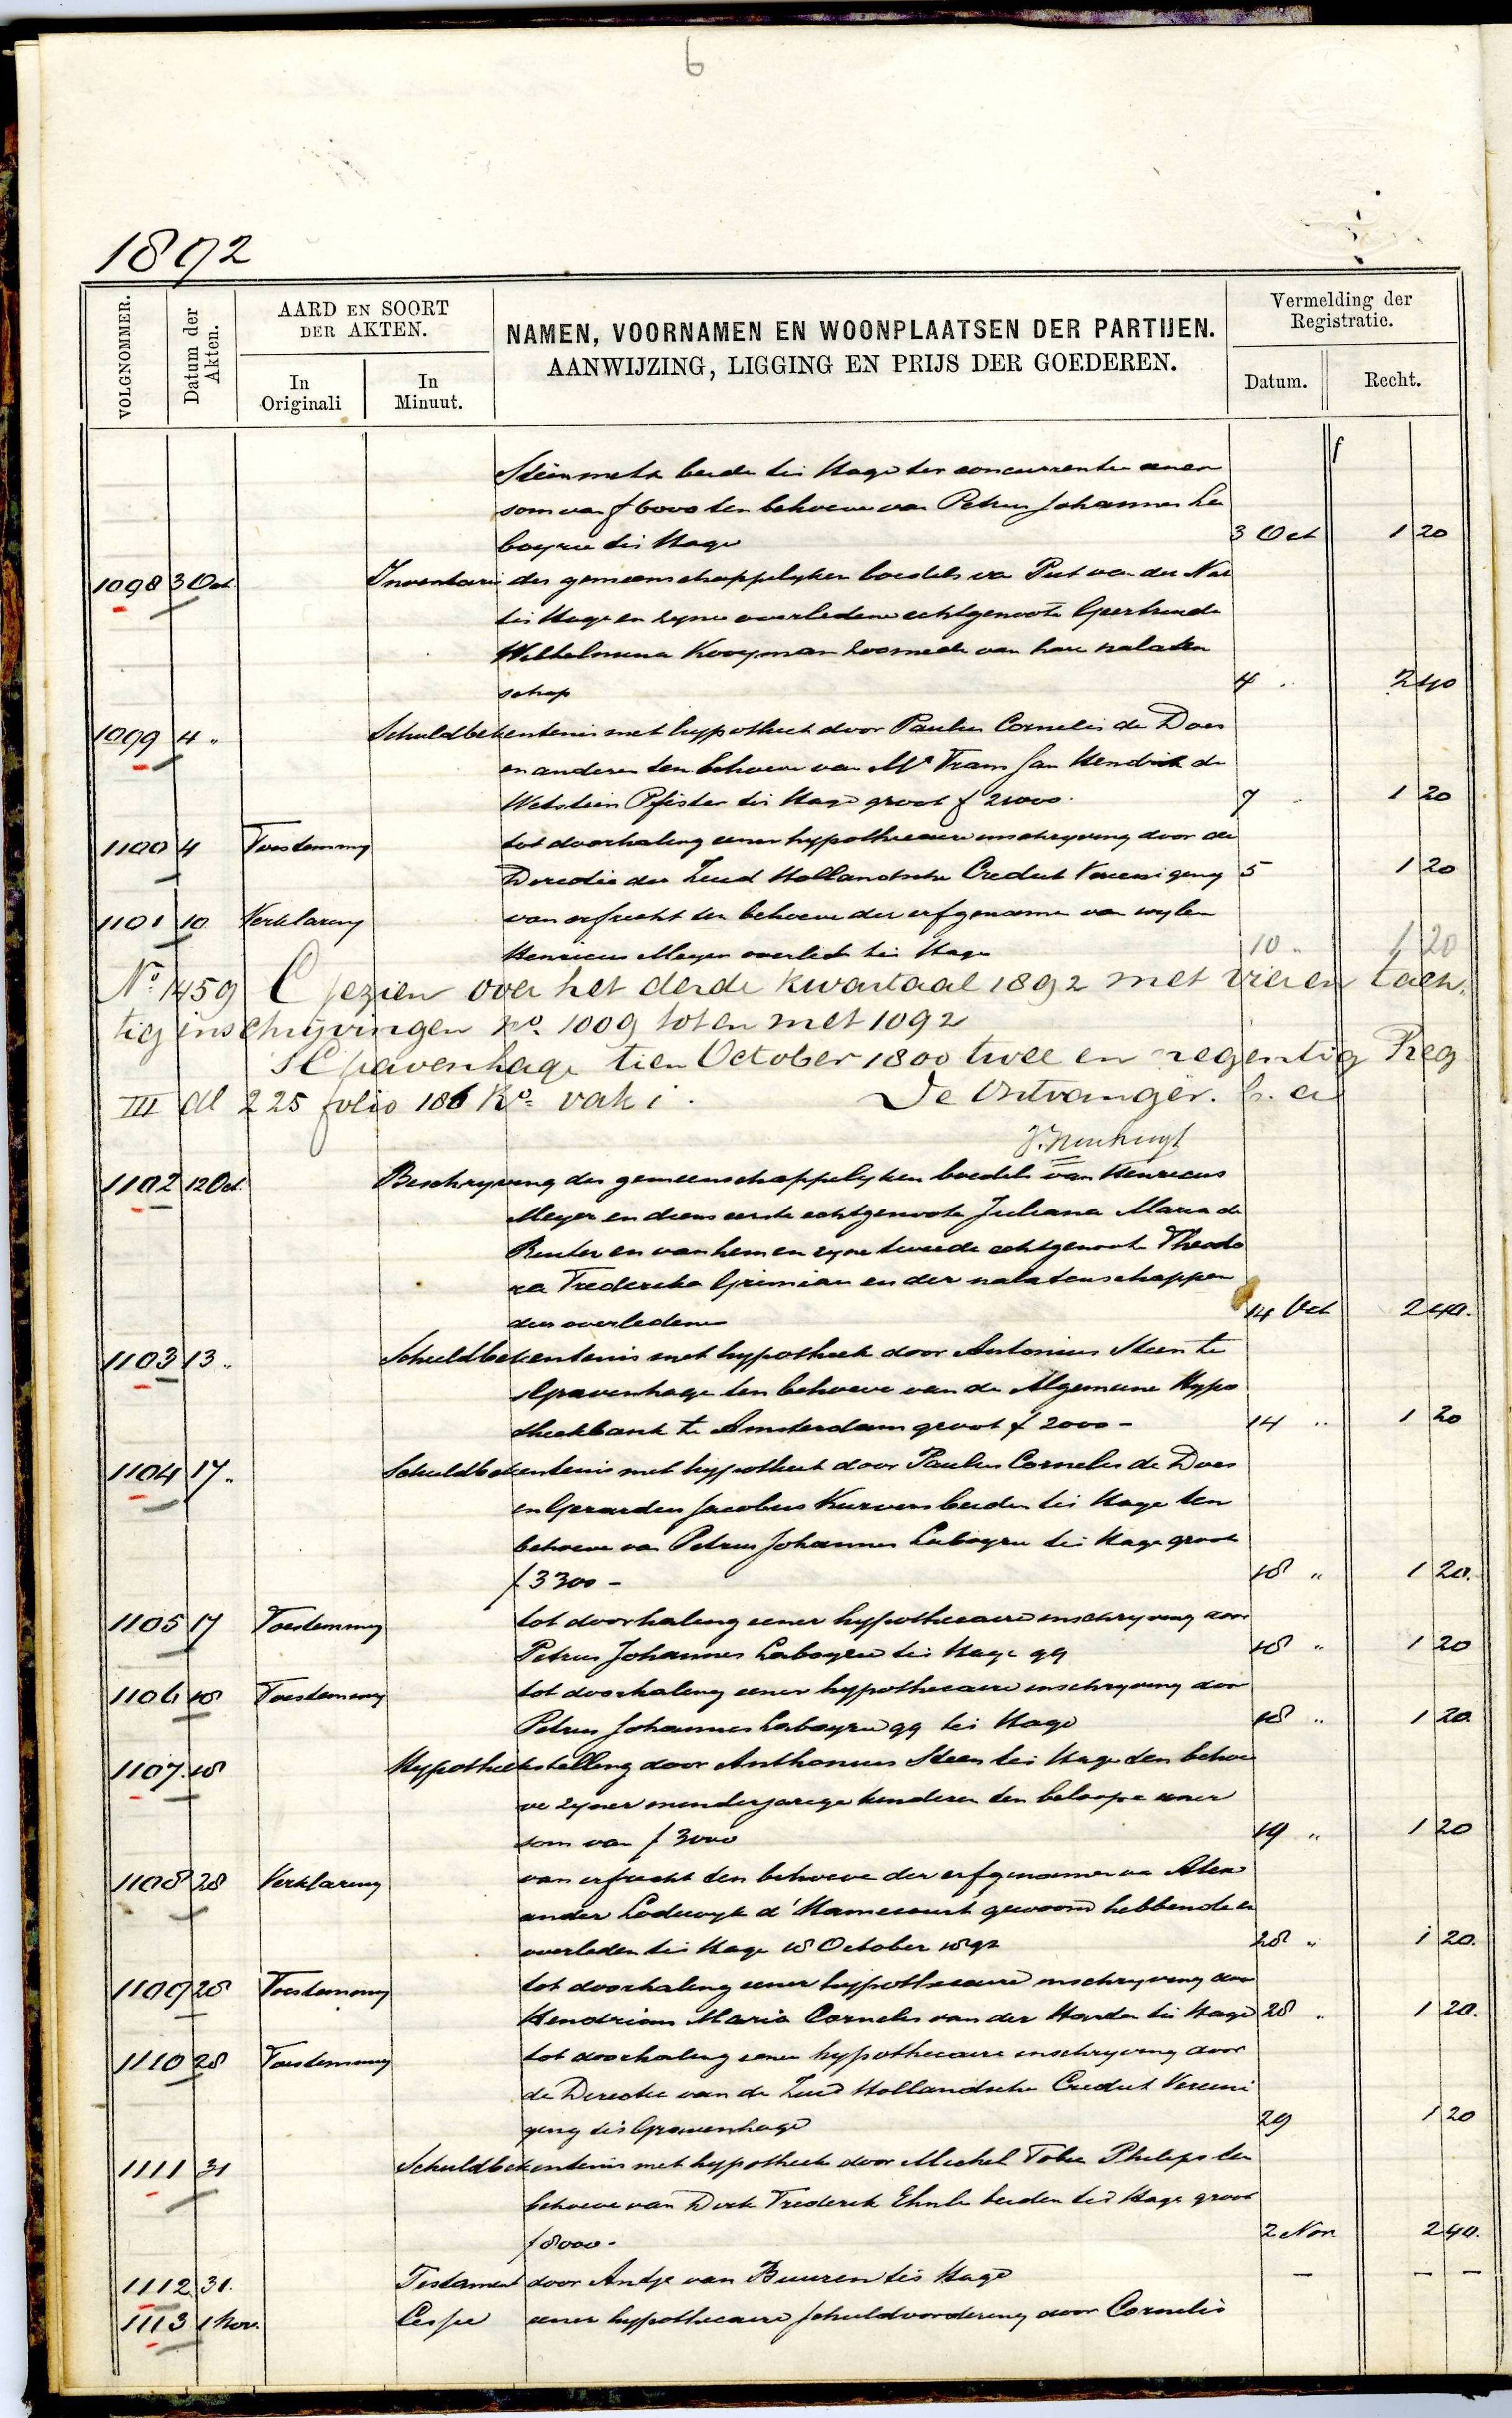 6
1892
VOLGNOMMER.
Datum der Akten.
AARD EN SOORT DER AKTEN.
In Originali
In Minuut.
NAMEN, VOORNAMEN EN WOONPLAATSEN DER PARTIJEN.
AANWIJZING, LIGGING EN PRIJS DER GOEDEREN.
Vermelding der Registratie.
Datum.
Recht.
f
Steinmetz beide te 's Hage ter concurrentie eener
som van f 6000 ten behoeve van Petrus Johannes La
boyrie te 's Hage 3 Oct 1 20
1098 3 Oct Inventaris des gemeenschappelyken boedels van Piet van der
te 's Hage en zyne overledene echtgenoote Geertruida
Wilhelmina Kooyman alsmede van hare nalaten
schap 4 " 2 40
1099 4 " Schuldbekentenis met hypotheek door Paulus Cornelis de Does
en anderen ten behoeve van Mr Frans Jan Hendrik de
Wetstein Pfister te 's Hage groot f 21000. 7 " 1 20
1100 4 Toestemming tot doorhaling eener hypothecaire inschryving door de
Directie der Zuid Hollandsche Crediet Vereeniging 5 1 20
1101 10 Verklaring van erfrecht ten behoeve der erfgenamen van wylen
Henricus Meyer overleden te 's Hage 10 " 1 20
No. 1459 Gezien over het derde kwartaal 1892 met vier en tach.
tig inschrijvingen no. 1009 tot en met 1092
's Gravenhage tien October 1800 twee en negentig Reg
III dl 225 folio 186 Ro. vak 1. De Ontvanger. b. a
1102 12 Oct. Beschryving des gemeenschappelyken boedels van Henricus
Meyer en diens eerste echtgenoote Juliana Maria de
Ruiter en van hem en zyne tweede echtgenoote Theodo
ra Frederika Grimian en der nalatenschappen
der overledenen 14 Oct 2 40.
1103 13 " Schuldbekentenis met hypotheek door Antonius Steen te
's Gravenhage ten behoeve van de Algemeene Hypo
theekbank te Amsterdam groot f 2000 - 14 " 1 20
1104 17 " Schuldbekentenis met hypotheek door Paulus Cornelis de Does
en Gerardus Jacobus Kurvers beiden te 's Hage ten
behoeve van Petrus Johannes Laboyrie te 's Hage groot
f 3300 - 18 " 1 20.
1105 17 Toestemming tot doorhaling eener hypothecaire inschryving door
Petrus Johannes Laboyrie te 's Hage qq 18 " 1 20
1106 18 Toestemming tot doorhaling eener hypothecaire inschryving door
Petrus Johannes Laboyrie qq te 's Hage 18 " 1 20
1107 18 Hypotheekstelling door Anthonius Steen te 's Hage ten behoe
ve zyner minderjarige kinderen ten beloope eener
som van f 3000 19 " 1 20
1108 28 Verklaring van erfrecht ten behoeve der erfgenamen van Alex
ander Lodewyk d'Hamecourt gewoond hebbende en
overleden te 's Hage 18 October 1892 28 " 1 20.
1109 28 Toestemming tot doorhaling eener hypothecaire inschryving door
Maria Cornelis van der te 's Hage 28 " 1 20.
1110 28 Toestemming tot doorhaling eener hypothecaire inschryving door
de Directie van de Zuid Hollandsche Crediet Vereeni
ging te 's Gravenhage 29 1 20
1111 31 Schuldbekentenis met hypotheek door Michel Philips ten
behoeve van Dirk Frederik beiden te 's Hage groot
f 8000.- 2 Nov 2 40.
1112 31. Testament door Antje van Buuren te 's Hage - - -
1113 1 Nov. Cessie eener hypothecaire schuldvordering door Cornelis